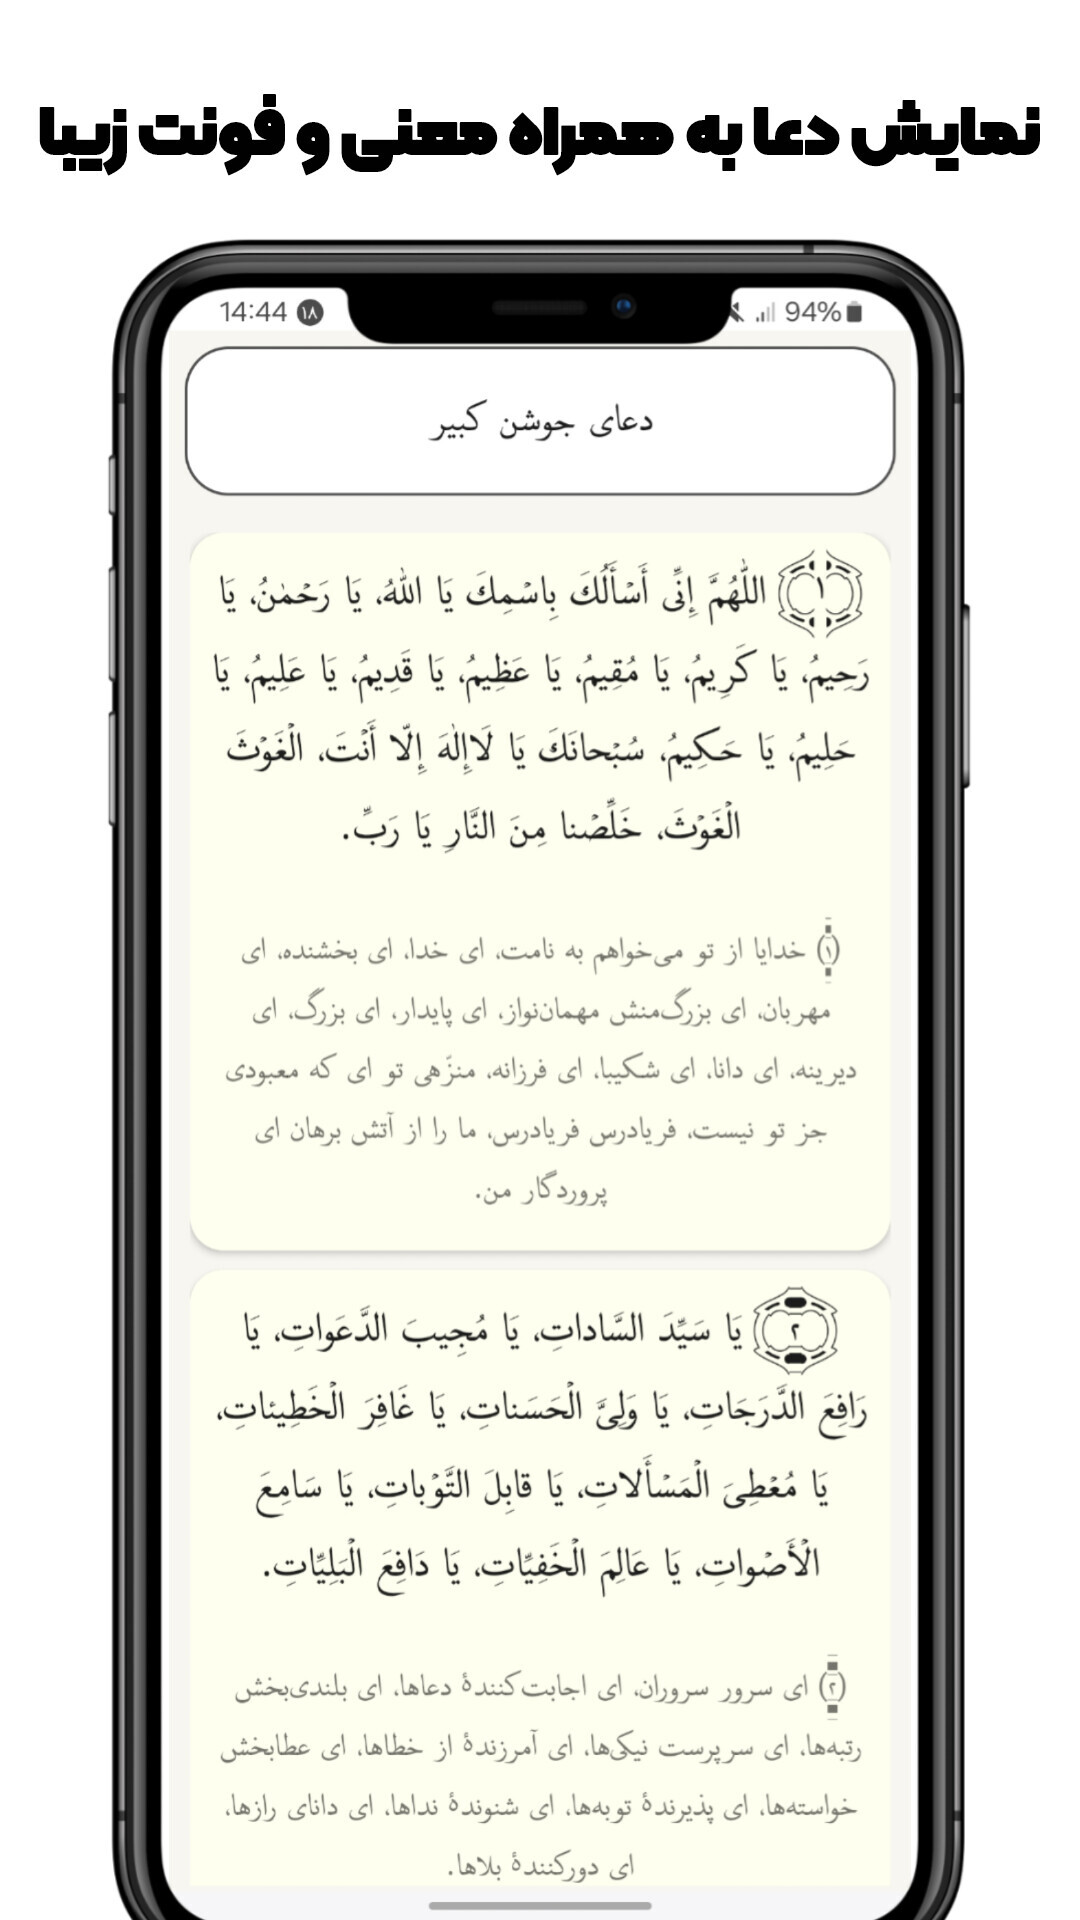 نمایش دعا به همراه معنی و فونت زیبا
14:44 ۱۸ 94%
دعای جوشن کبیر
۱ اللّٰهُمَّ إِنِّى أَسْأَلُكَ بِاسْمِكَ يَا اللّٰهُ، يَا رَحْمٰنُ، يَا
رَحِيمُ، يَا كَرِيمُ، يَا مُقِيمُ، يَا عَظِيمُ، يَا قَدِيمُ، يَا عَلِيمُ، يَا
حَلِيمُ، يَا حَكِيمُ، سُبْحانَكَ يَا لَاإِلٰهَ إِلّا أَنْتَ، الْغَوْثَ
الْغَوْثَ، خَلِّصْنا مِنَ النَّارِ يَا رَبِّ.
(۱) خدایا از تو می‌خواهم به نامت، ای خدا، ای بخشنده، ای
مهربان، ای بزرگ‌منش مهمان‌نواز، ای پایدار، ای بزرگ، ای
دیرینه، ای دانا، ای شکیبا، ای فرزانه، منزّهی تو ای که معبودی
جز تو نیست، فریادرس فریادرس، ما را از آتش برهان ای
پروردگار من.
۲ يَا سَيِّدَ السَّاداتِ، يَا مُجِيبَ الدَّعَواتِ، يَا
رَافِعَ الدَّرَجَاتِ، يَا وَلِىَّ الْحَسَناتِ، يَا غَافِرَ الْخَطِيئاتِ،
يَا مُعْطِىَ الْمَسْأَلاتِ، يَا قابِلَ التَّوْباتِ، يَا سَامِعَ
الْأَصْواتِ، يَا عَالِمَ الْخَفِيَّاتِ، يَا دَافِعَ الْبَلِيَّاتِ.
(۲) ای سرور سروران، ای اجابت‌کنندهٔ دعاها، ای بلندی‌بخش
رتبه‌ها، ای سرپرست نیکی‌ها، ای آمرزندهٔ از خطاها، ای عطابخش
خواسته‌ها، ای پذیرندهٔ توبه‌ها، ای شنوندهٔ نداها، ای دانای رازها،
ای دورکنندهٔ بلاها.